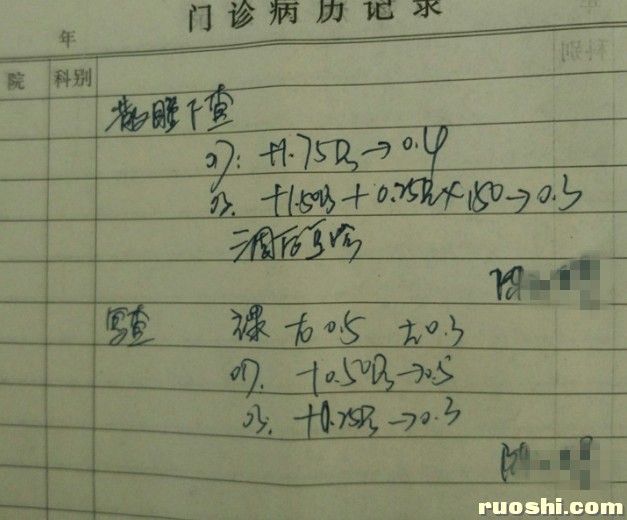 门诊病历记录
年
院 科别
散瞳下查
OD: +1.75DS→0.4
OS: +1.50DS+0.75DC×150→0.3
三周后复验
复查 裸 右0.5 左0.3
OD: +0.50DS→0.5
OS: +0.75DS→0.3
ruoshi.com